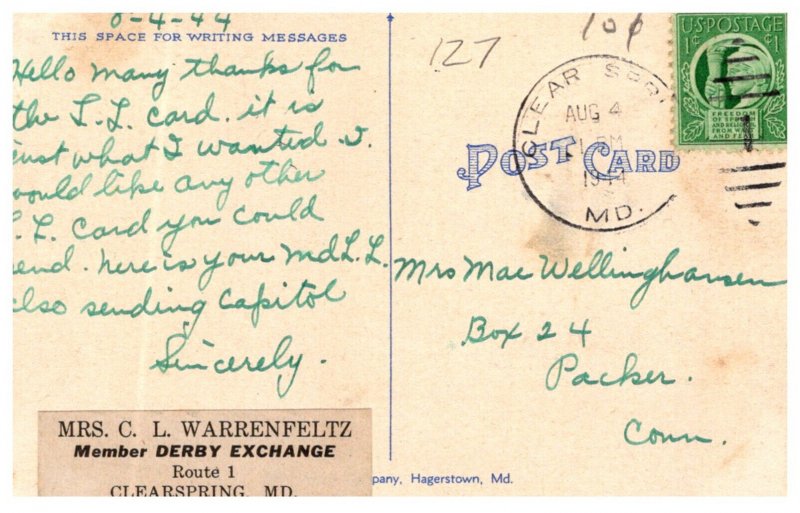 8-4-44
THIS SPACE FOR WRITING MESSAGES
Hello many thanks for
the L.L. card. it is
just what I wanted I
would like any other
L.L. card you could
send. here is your Md L.L.
also sending Capitol
Sincerely.
MRS. C. L. WARRENFELTZ
Member DERBY EXCHANGE
Route 1
CLEARSPRING, MD.
pany, Hagerstown, Md.
127
10¢
U.S. POSTAGE
1¢ ¢1
FREEDOM
OF SPEECH
AND RELIGION
FROM WANT
AND FEAR
CLEAR SPRI
AUG 4
1 PM
1944
MD.
POST CARD
Mrs Mae Wellinghausen
Box 24
Packer.
Conn.